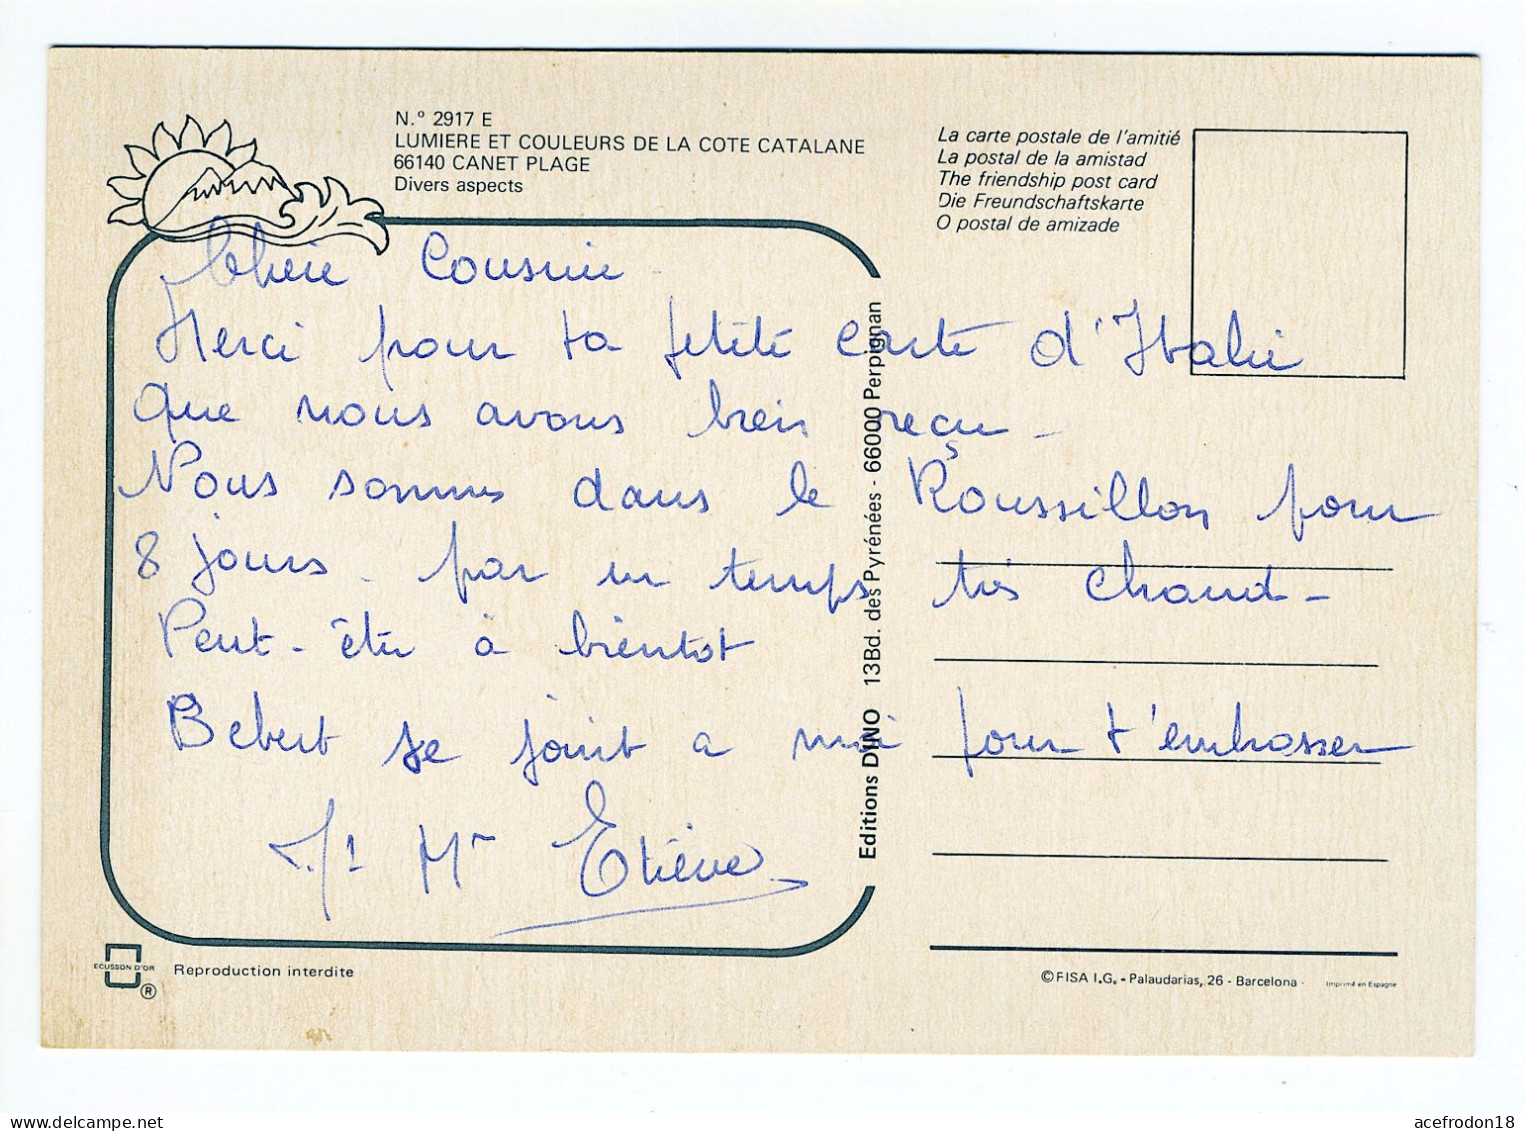 N.º 2917 E
LUMIERE ET COULEURS DE LA COTE CATALANE
66140 CANET PLAGE
Divers aspects
La carte postale de l'amitié
La postal de la amistad
The friendship post card
Die Freundschaftskarte
O postal de amizade
Chère Cousine
Merci pour ta petite carte d'Italie
que nous avons bien reçu_
Nous sommes dans le Roussillon pour
8 jours. par un temps très chaud_
Peut-être à bientot
Bebert se joint a moi pour t'embrasser
Mr Etiève
Editions DINO 13Bd. des Pyrénées - 66000 Perpignan
ECUSSON D'OR
®
Reproduction interdite
©FISA I.G. - Palaudarias, 26 - Barcelona
Imprimé en Espagne
acefrodon18